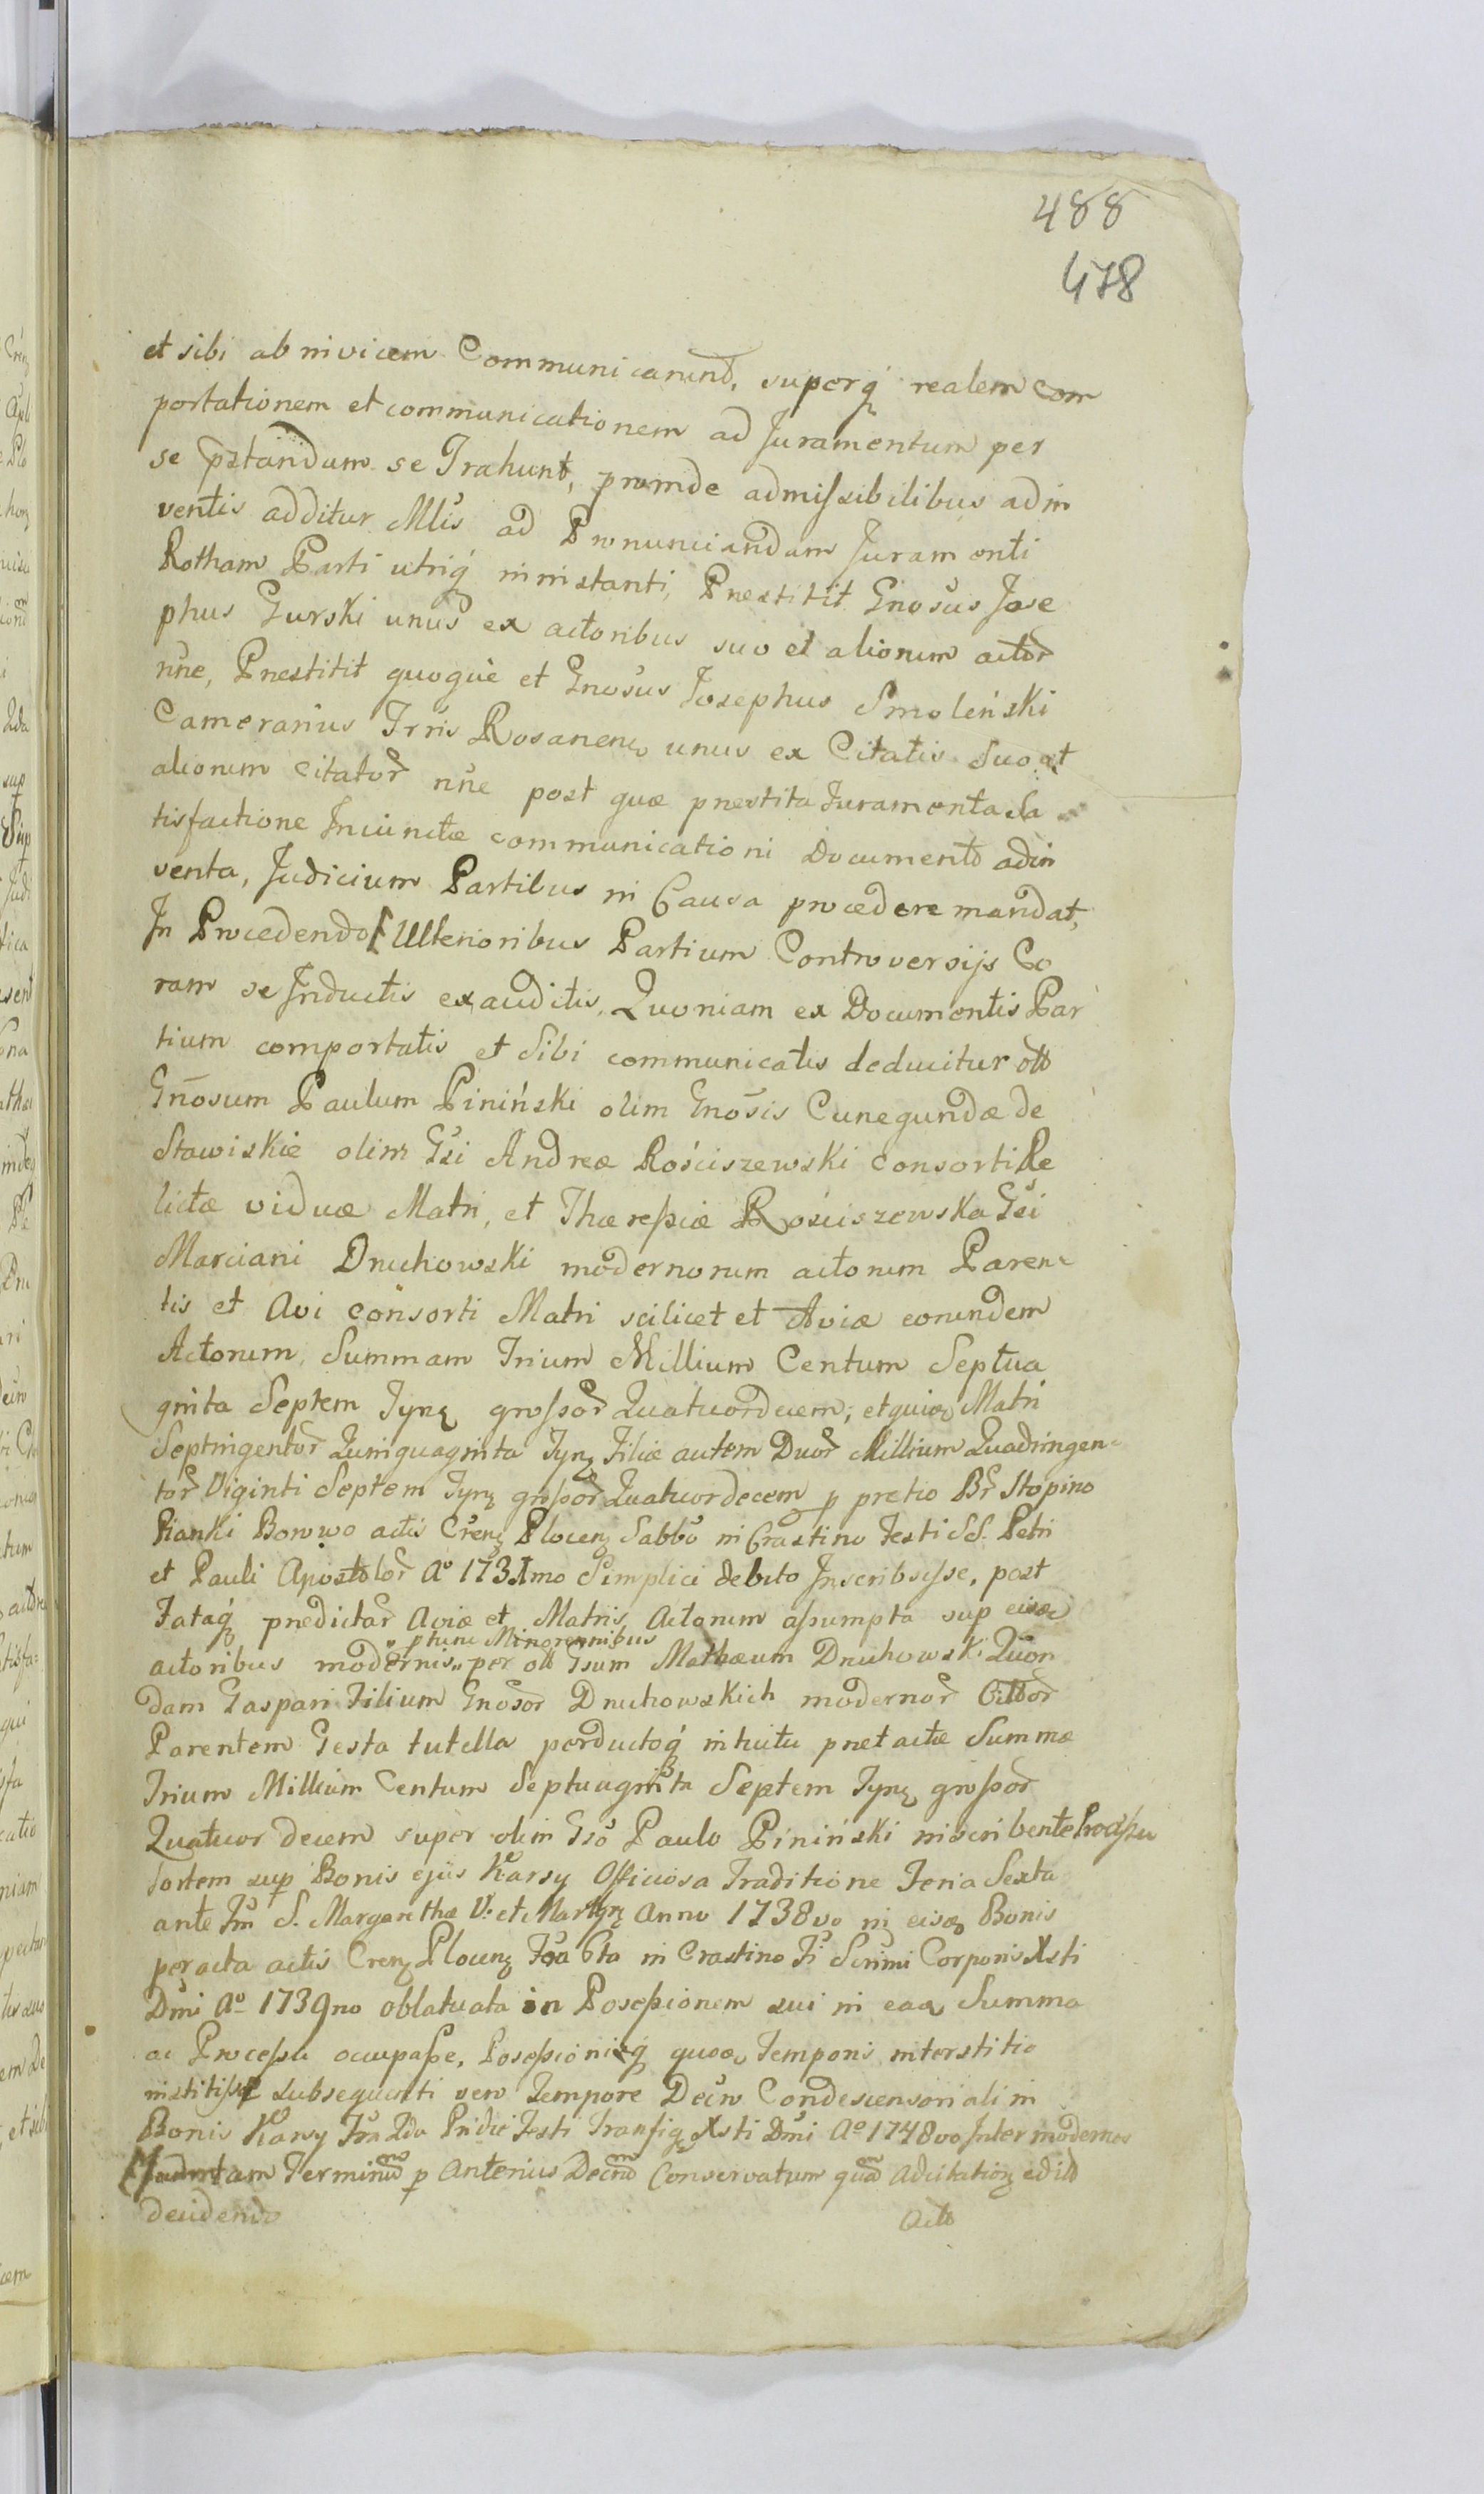 488
478
et sibi ab invicem Communicarunt, superq́ realem com
portationem et communicationem ad Juramentum per
se pztandum se Trahunt, proinde admissibilibus adin
ventis additur Mlis ad Pronunciandam Juramenti
Rotham Parti utriq́ ininstanti, Prestitit Gnosus Jose
phus Gurski unus ex actoribus suo et aliorum actor
nne, Prestitit quoque et Gnosus Josephus Smoleński
Camerarius Trris Rosanen unus ex Citatis suo et
aliorum citator nne post quæ prestita Juramenta Sa
tisfactione Iniunctæ communicationi Document adin
venta, Judicium Partibus in Causa procedere mandat,
In Procedendo Ulterioribus Partium Controversijs Co
ram se Inductis exauditis, Quoniam ex Documentis Par
tium comportatis et Sibi communicatis deducitur oll
Gnosum Paulum Piniński olim Gnosis Cunegundæ de
Stawiskie olim Gsi Andreæ Rościszewski consorti Re
lictæ viduæ Matri, et Thæressiæ Rościszewska Gsi
Marciani Druchowski modernorum actorum Paren
tis et Avi consorti Matri scilicet et Aviæ eorundem
Actorum, Summam Trium Millium Centum Septua
ginta Septem Fynę grossor Quatuordecem; et quiaꝫ Matri
Septingentor Quinquaginta Fynę Filiæ autem Duor Millium Quadringen
tor Viginti Septem Fynę grossor Quatuordecem p pretio Br Stopino
Pianki Borowo actis Crenꝫ Plocenꝫ Sabbo in Crastino Festi SS. Petri
et Pauli Apostolor Aº 1731mo Simplici debito Inscribsisse, post
Fataq́ predictar Aviæ et Matris Actorum assumpta sup eisdꝫ
ptunc Minorennibus
actoribus modernis per oll Gsum Mathæum Druchowski Quon
dam Gaspari Filium Gnosor Druchowskich modernor Cittor
Parentem Gesta tutella perductoq́ intuitu pretactæ Summæ
Trium Millium Centum Septuaginta Septem Fynę grossor
Quatuordecem super olim Gso Paulo Piniński inscribente Processu
fortem sup Bonis ejus Karsy Officiosa Traditione Feria Sexta
ante Fm S. Margarethæ V. et Martyrę Anno 1738vo in eisdꝫ Bonis
peracta actis Crenꝫ Plocenꝫ Fra 6ta in Crastino Fi Scrimi Corporis Xsti
Dmi Aº 1739no oblatuata in Possessionem sui in eadꝫ Summa
ac Processu occupasse, Possessioniq́ quodꝫ Temporis interstitio
institisse subsequenti vero Tempore Decro Condescensoriali in
Bonis Karsy Fra 2da Pridie Festi Transfigꝫ Xsti Dmi Aº 1748vo Inter modernos
Terminum p Anterius Decrm Conservatum quam Adcitationꝫ
decidendo
Acto